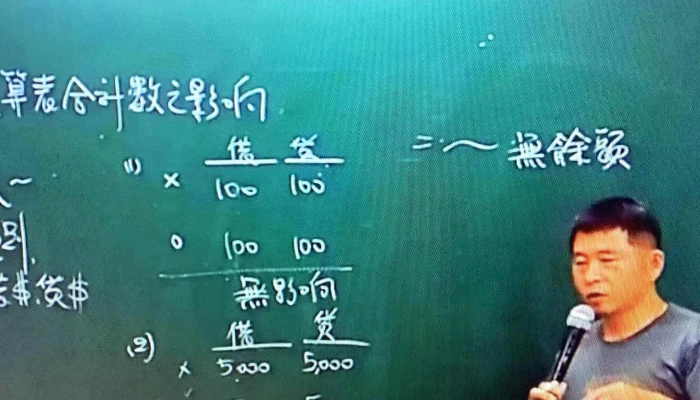 算表合計数之影响
二:~ 無餘額
借 貸
(1) x 100 100
0 100 100
無影响
$.貸$
借 貸
(2) x 5,000 5,000